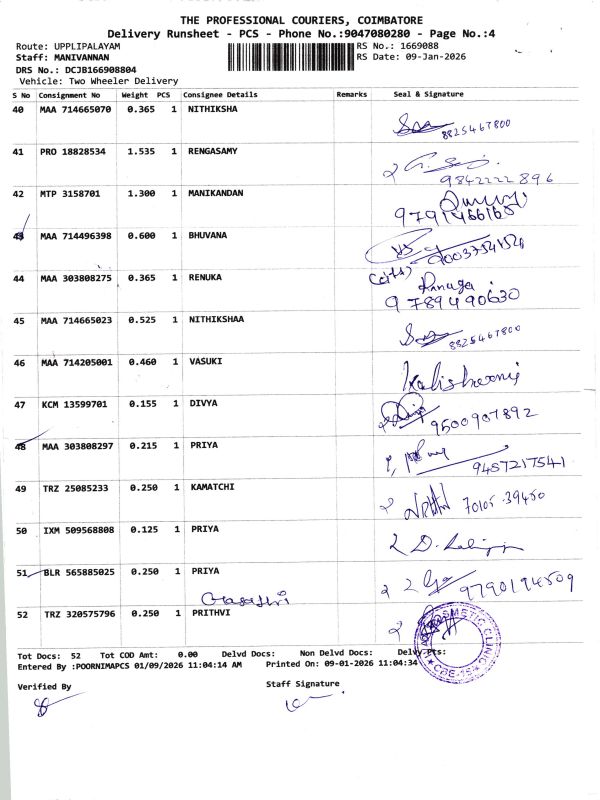 THE PROFESSIONAL COURIERS, COIMBATORE
Delivery Runsheet - PCS - Phone No.:9047080280 - Page No.:4
Route: UPPLIPALAYAM RS No.: 1669088
Staff: MANIVANNAN RS Date: 09-Jan-2026
DRS No.: DCJB166908804
Vehicle: Two Wheeler Delivery
S No Consignment No Weight PCS Consignee Details Remarks Seal & Signature
40 MAA 714665070 0.365 1 NITHIKSHA
8825467800
41 PRO 18828534 1.535 1 RENGASAMY
9842222896
42 MTP 3158701 1.300 1 MANIKANDAN
9791466160
43 MAA 714496398 0.600 1 BHUVANA
44 MAA 303808275 0.365 1 RENUKA
9789490630
45 MAA 714665023 0.525 1 NITHIKSHAA
8825467800
46 MAA 714205001 0.460 1 VASUKI
47 KCM 13599701 0.155 1 DIVYA
9500907892
48 MAA 303808297 0.215 1 PRIYA
9457217541
49 TRZ 25085233 0.250 1 KAMATCHI
70105-39450
50 IXM 509568808 0.125 1 PRIYA
51 BLR 565885025 0.250 1 PRIYA
9790194509
52 TRZ 320575796 0.250 1 PRITHVI
Tot Docs: 52 Tot COD Amt: 0.00 Delvd Docs: Non Delvd Docs: Delvy Pts:
Entered By :POORNIMAPCS 01/09/2026 11:04:14 AM Printed On: 09-01-2026 11:04:34
COSMETIC CLINIC
CBE-18
Verified By Staff Signature